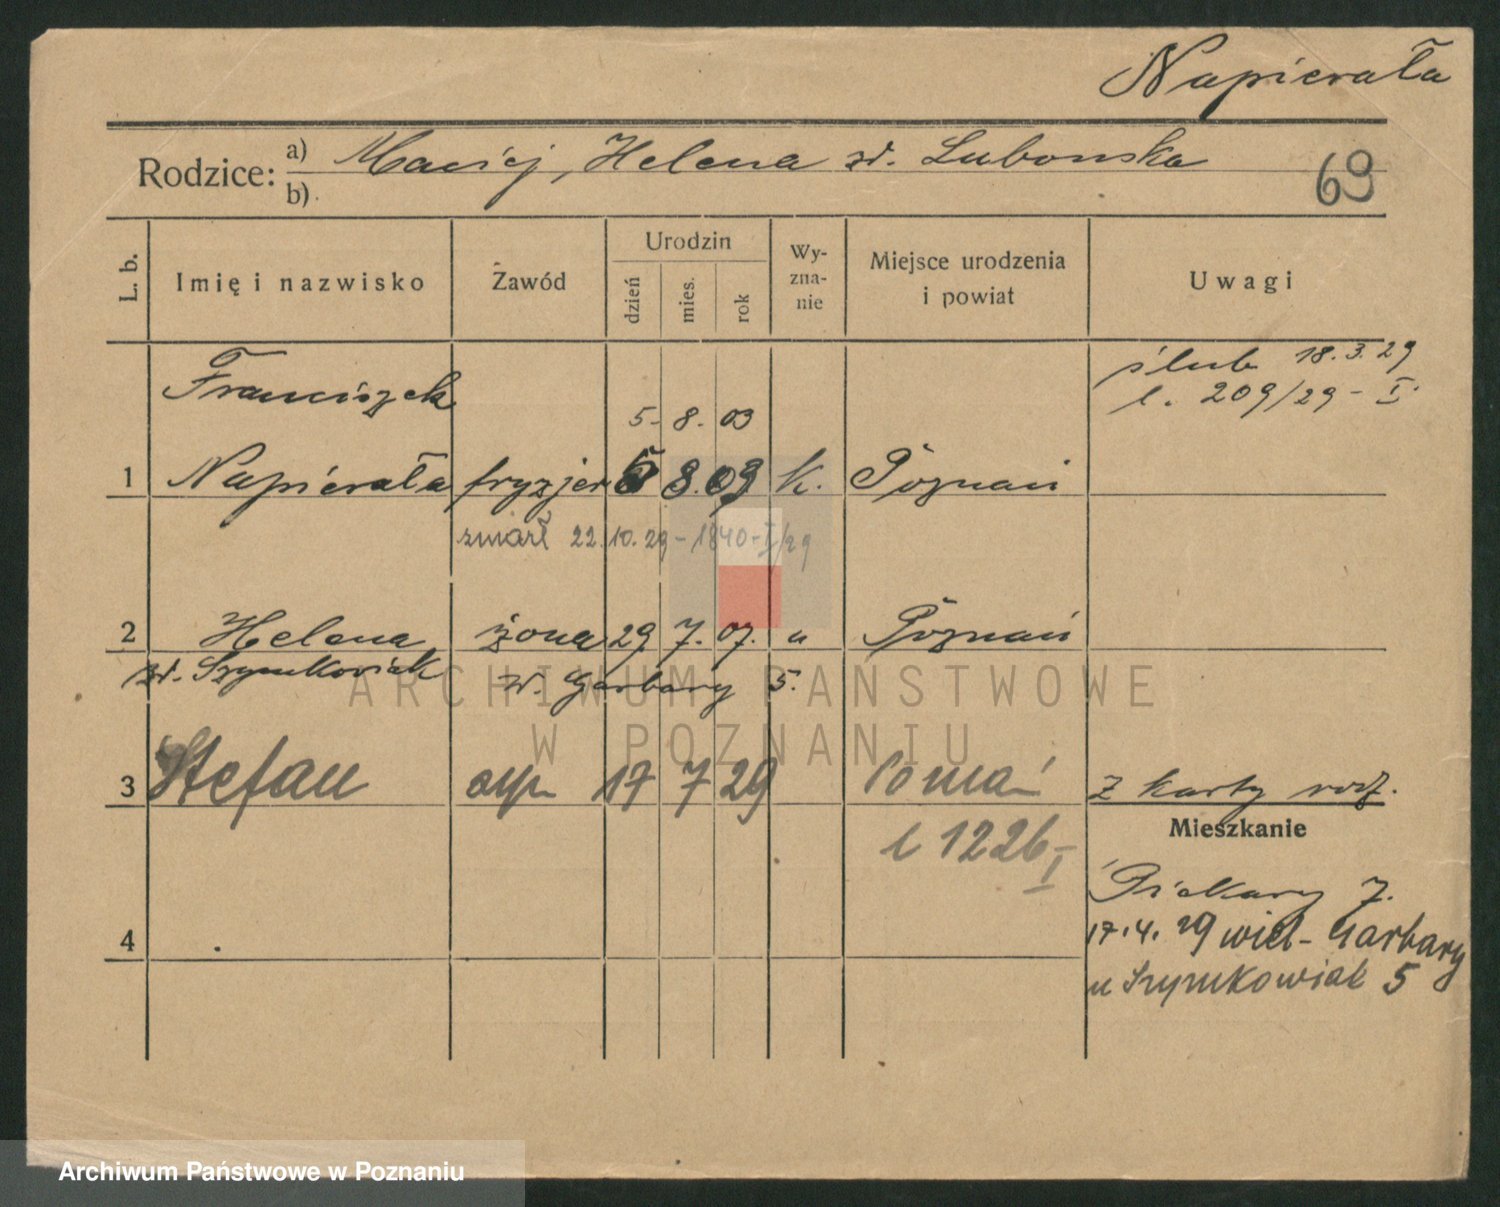 Napierała
Rodzice: a) Maciej, Helena zd. Lubońska
b)
69
L. b.
Imię i nazwisko
Zawód
Urodzin
dzień
mies.
rok
Wy-
zna-
nie
Miejsce urodzenia
i powiat
Uwagi
ślub 18.3.29
l. 209/29-I.
Franciszek
5. 8. 03
1 Napierała fryzjer 5 8. 03 k. Poznań
zmarł 22.10.29 - 1840-I/29
2 Helena żona 29 7. 07. u Poznań
zd. Szymkowiak W. Garbary 5.
ARCHIWUM PAŃSTWOWE
W POZNANIU
3 Stefan syn 17 7 29 Poznań z karty rodz.
l 1226 I
Mieszkanie
Piekary 7.
17.4.29 wiel- Garbary
u Szymkowiak 5
4
Archiwum Państwowe w Poznaniu